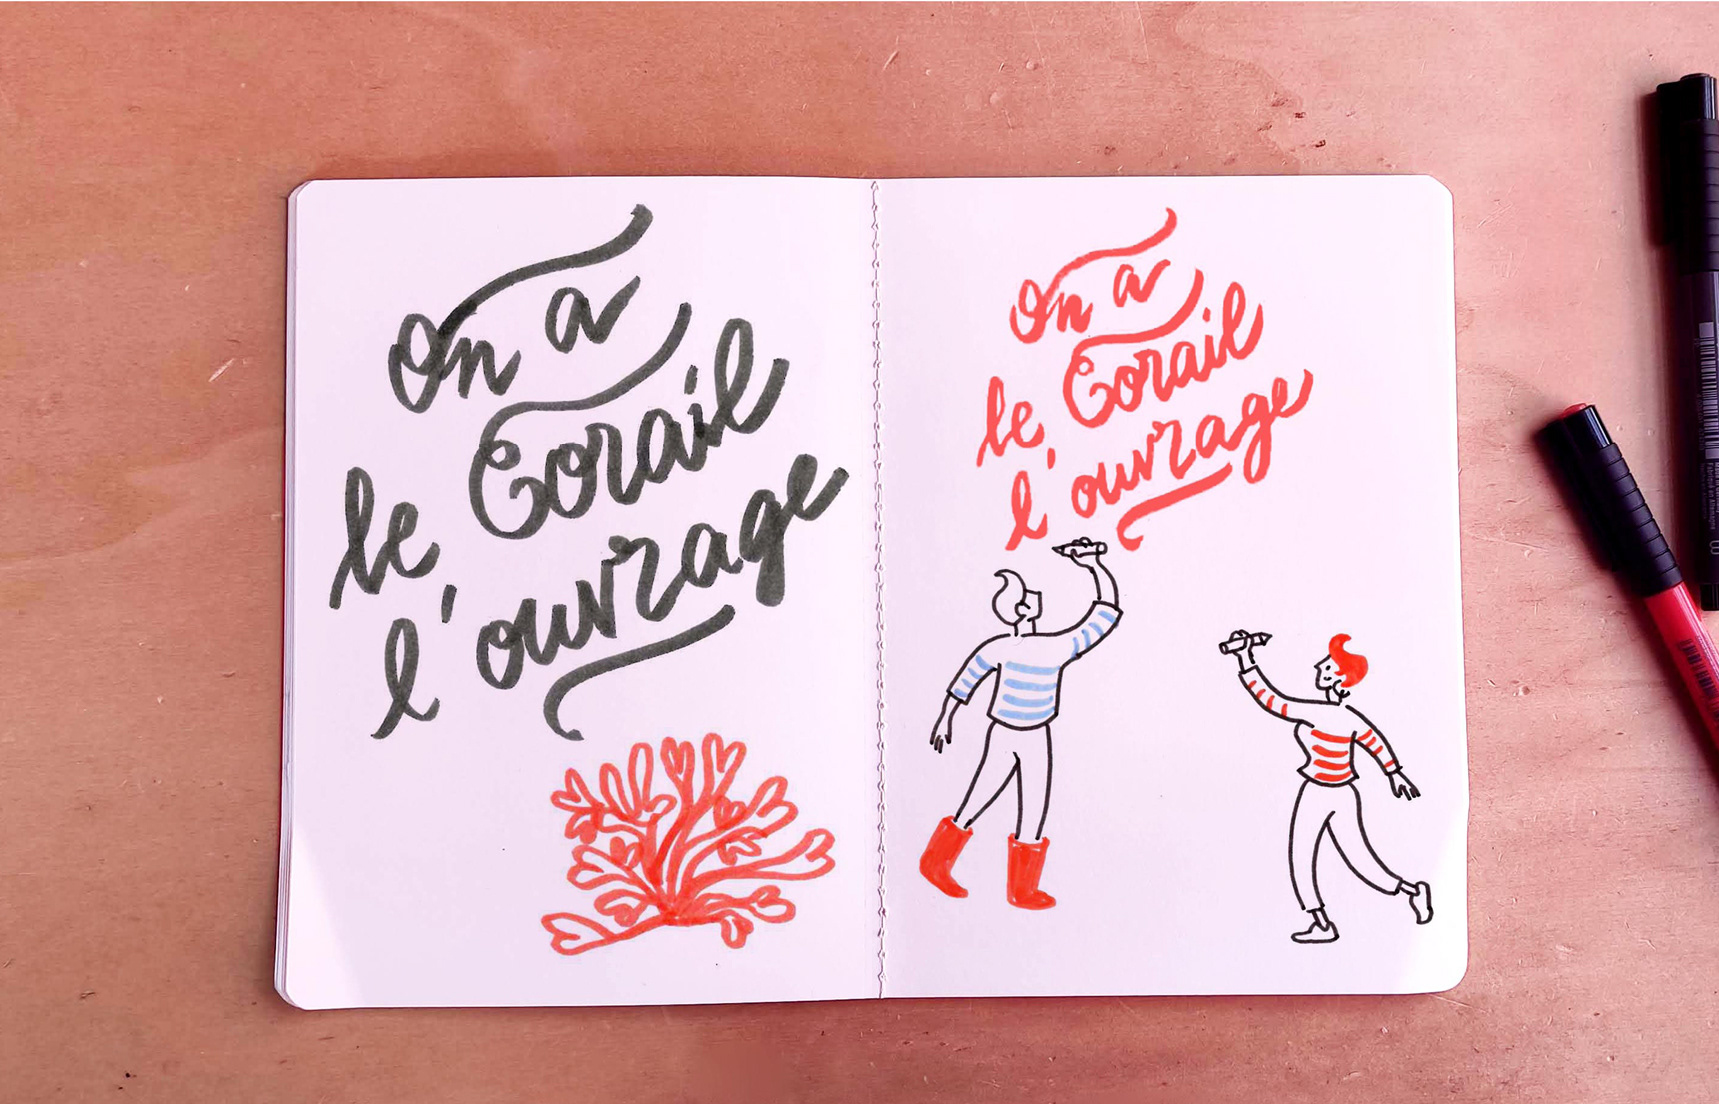 On a
le Corail
l'ouvrage
On a
le Corail
l'ouvrage